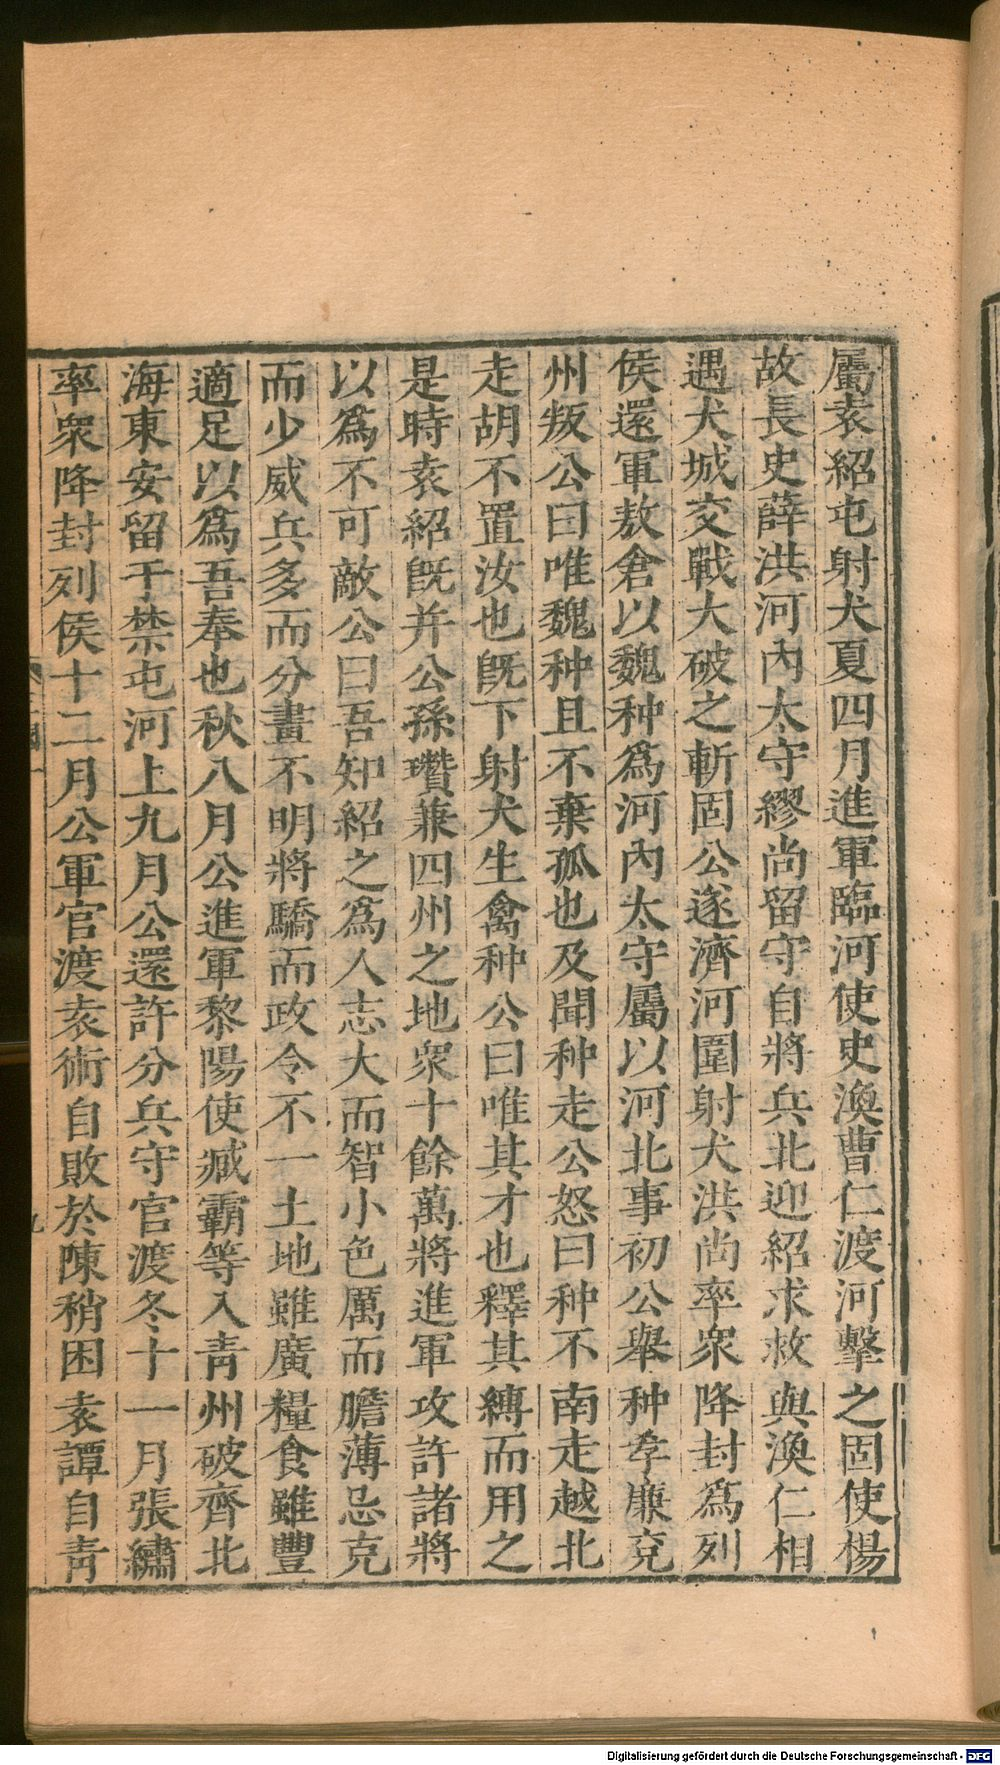 屬袁紹屯射犬夏四月進軍臨河使史渙曹仁渡河擊之固使楊
故長史薛洪河內太守繆尚留守自將兵北迎紹求救與渙仁相
遇犬城交戰大破之斬固公遂濟河圍射犬洪尚率眾降封爲列
侯還軍敖倉以魏种爲河內太守屬以河北事初公舉种孝廉兗
州叛公曰唯魏种且不棄孤也及聞种走公怒曰种不南走越北
走胡不置汝也旣下射犬生禽种公曰唯其才也釋其縛而用之
是時袁紹旣并公孫瓚兼四州之地眾十餘萬將進軍攻許諸將
以爲不可敵公曰吾知紹之爲人志大而智小色厲而膽薄忌克
而少威兵多而分畫不明將驕而政令不一土地雖廣糧食雖豐
適足以爲吾奉也秋八月公進軍黎陽使臧霸等入青州破齊北
海東安留于禁屯河上九月公還許分兵守官渡冬十一月張繡
率眾降封列侯十二月公軍官渡袁術自敗於陳稍困袁譚自青
九
Digitalisierung gefördert durch die Deutsche Forschungsgemeinschaft - DFG